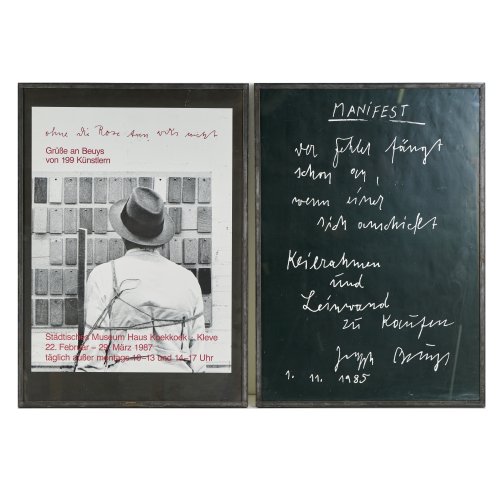 ohne die Rose tun wir's nicht
Grüße an Beuys
von 199 Künstlern
Städtisches Museum Haus Koekkoek Kleve
22. Februar – 29. März 1987
täglich außer montags 10–13 und 14–17 Uhr
MANIFEST
der Fehler fängt
schon an,
wenn einer
sich anschickt
Keilrahmen
und
Leinwand
zu kaufen
Joseph Beuys
1. 11. 1985